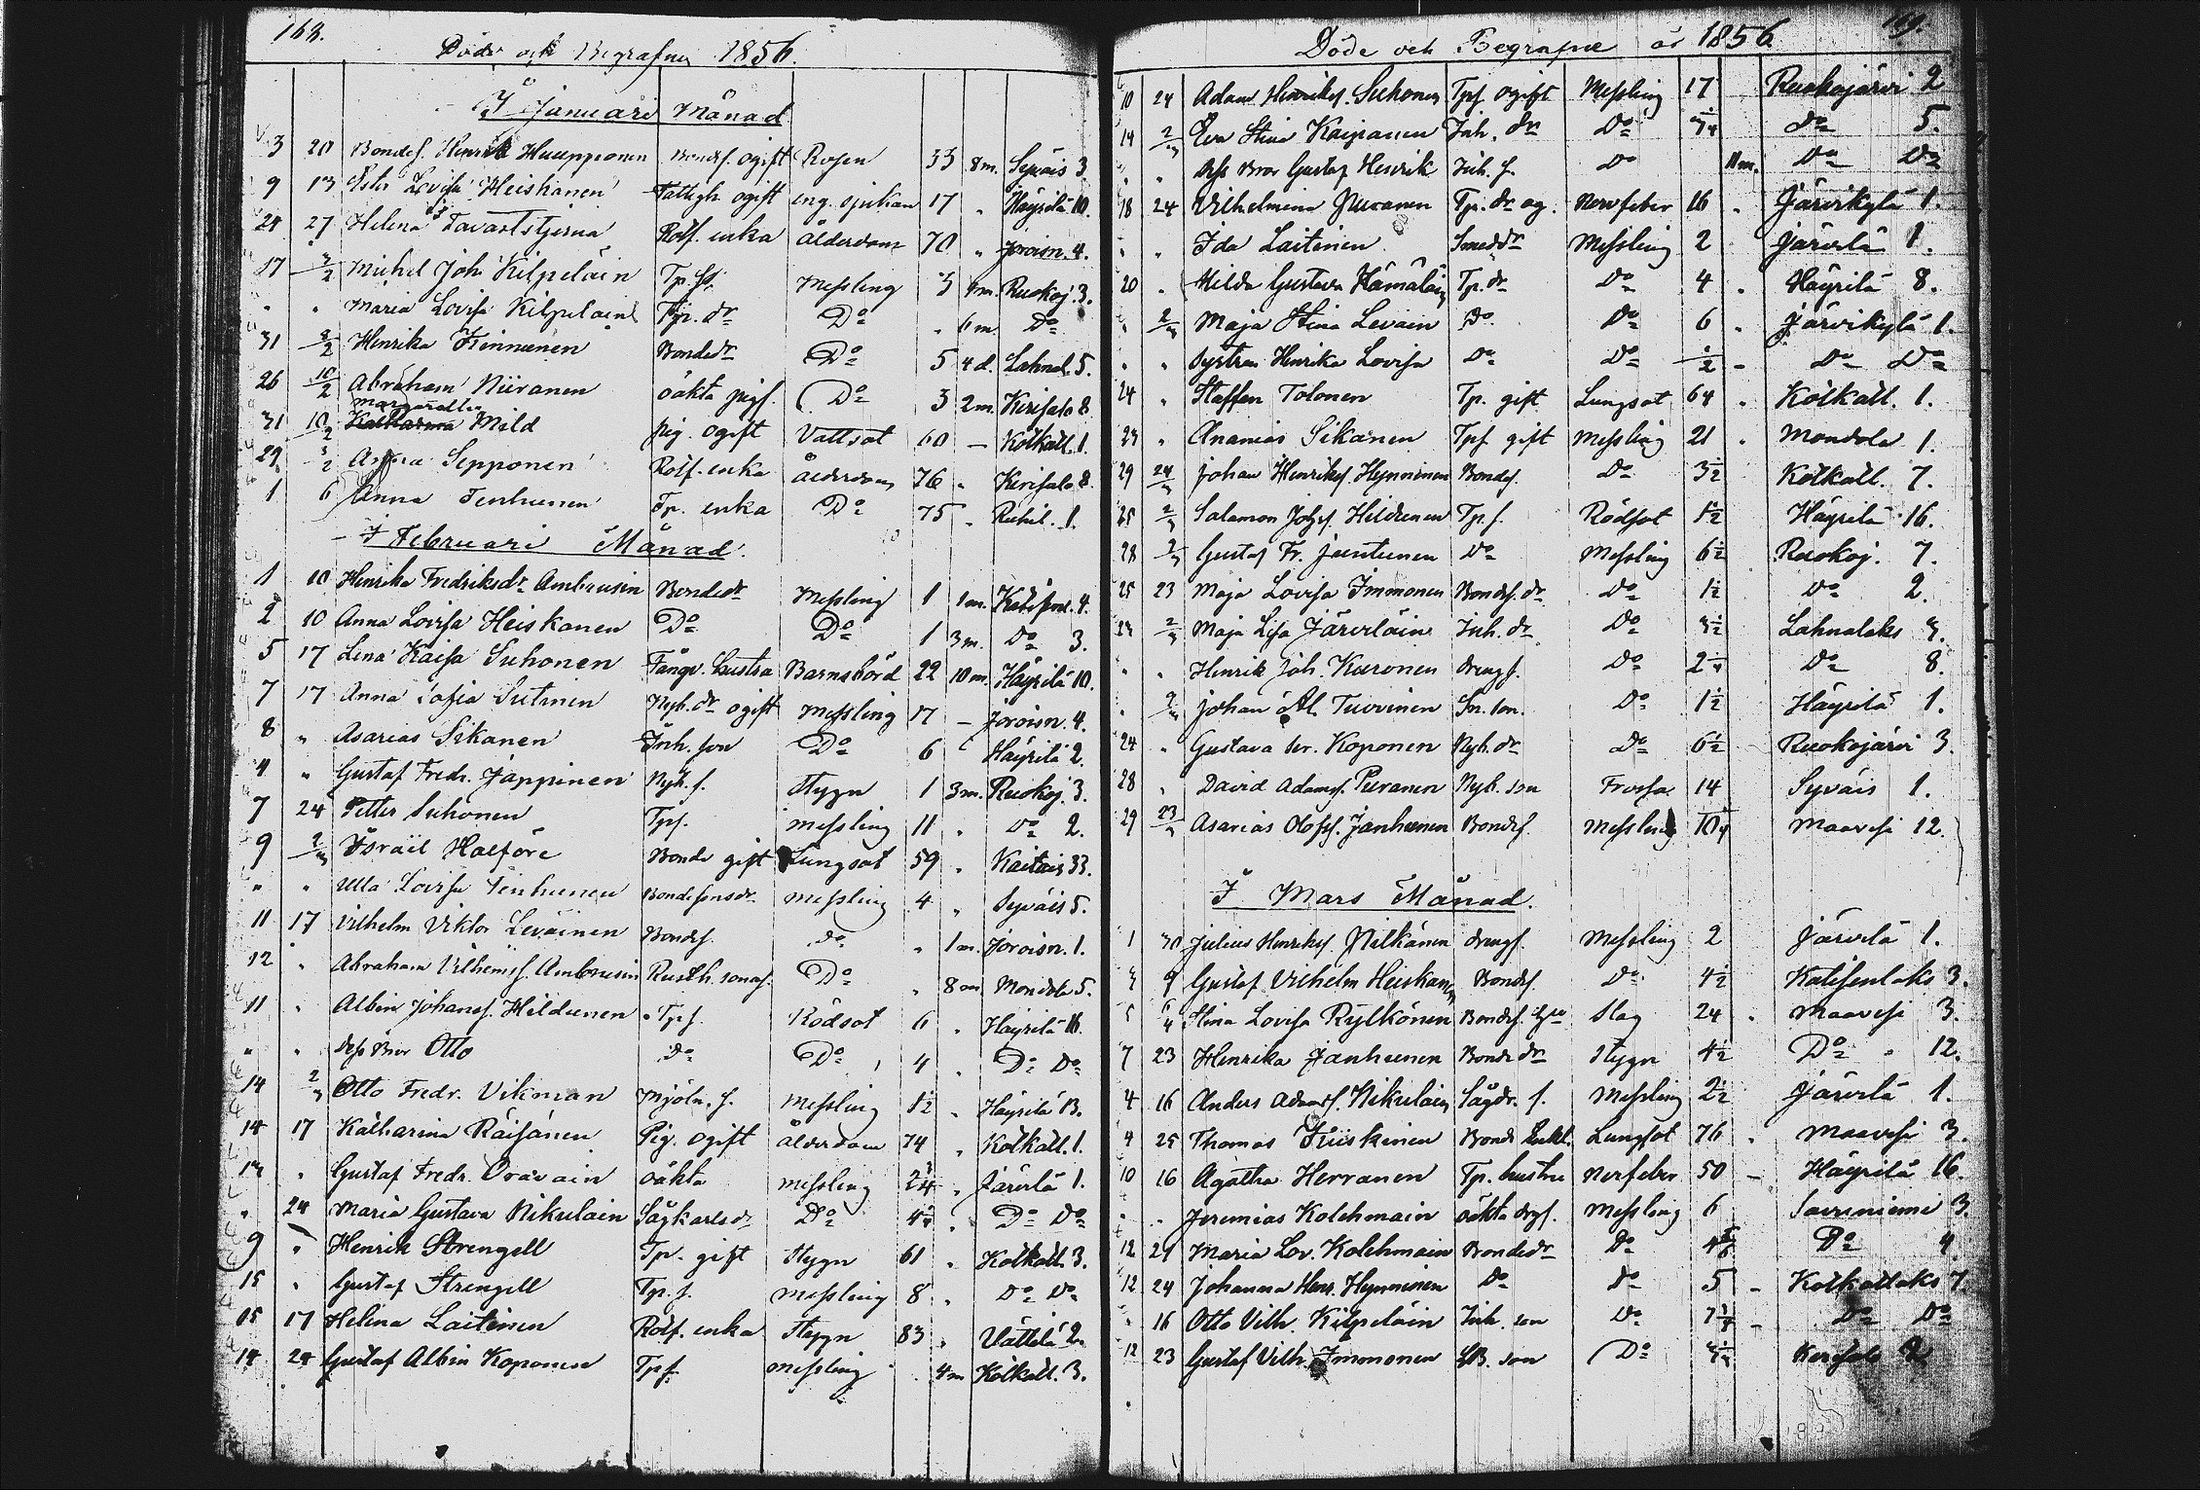 168.
Döde och Begrafne 1856.
I Januari Månad
3 20 Bondes. Henrik Huupponen Bondes. ogift Rosen 33 8m. Syväis 3.
9 13 Ester Lovisa Heiskanen Fattigh. ogift eng. sjukan 17 " Häyrilä 10.
24 27 Helena Tavaststjerna Rotf. enka Ålderdom 70 " Joroisn. 4.
17 3/2 Michel Joh. Kilpeläin Tp. s. Messling 3 9m. Ruokoj. 3.
" " Maria Lovisa Kilpeläin Tp. dr Do " 6m Do
31 3/2 Henrika Kinnunen Bondedr Do 5 4d. Lahnal. 5.
26 10/2 Abraham Niiranen oäkta pigs. Do 3 2m. Kerisalo 8
31 10/2 Margaretha Mild pig. ogift Vattsot 60 – Kotkatl. 1.
29 3/2 Anna Sepponen Rotf. enka Ålderdom 76 " Kerisalo 8.
1 6 Anna Tenhunen Tp. enka Do 75 " Ruhil. 1.
I Februari Månad.
1 10 Henrika Fredriksdr Ambrusin Bondedr Messling 1 1m. Katisenl. 4.
2 10 Anna Lovisa Heiskanen Do Do 1 3m. Do 3.
5 17 Lena Kaisa Suhonen Fångv. hustru Barnsbörd 22 10m. Häyrilä 10.
7 17 Anna Sofia Sutinen Nyb. dr ogift Messling 17 – Joroisn. 4.
8 " Asarias Sikanen Inh. son Do 6 Häyrilä 2.
4 " Gustaf Fredr. Jäppinen Nyb. s. Stygn 1 3m. Ruokoj. 3.
7 24 Petter Suhonen Tps. Messling 11 " Do 2.
9 2/3 Israel Halföre Bonde gift Lungsot 59 " Kaitais 33.
" " Ulla Lovisa Tenhunen Bondesonsdr Messling 4 " Syväis 5.
11 17 Vilhelm Viktor Leväinen Bondes. Do " 1m. Joroisn. 1.
12 " Abraham Vilhelmss. Ambrusin Rusth. sonas. Do " 8m Mondola 5.
11 " Albin Johanss. Hildunen Tps. Rödsot 6 " Häyrilä 16.
" " Dess Bror Otto Do Do 4 " Do Do
14 2/3 Otto Fredr. Vikman Mjöln. s. Messling 1 1/2 " Häyrilä 13.
14 17 Katharina Räisänen Pig. ogift Ålderdom 74 " Kotkatl. 1.
13 " Gustaf Fredr. Oravain oäkta Messling 2 3/4 " Järvelä 1.
" 24 Maria Gustava Nikulain Sågkarlsdr Do " Do Do
9 " Henrik Strengell Tp. gift Stygn 61 " Kotkatl. 3.
15 " Gustaf Strengell Tp. s. Messling 8 " Do Do
15 17 Helena Laitinen Rotf. enka Stygn 83 " Vättilä 2.
14 24 Gustaf Albin Koponen Tps. Messling 4m Kotkatl. 3.
169.
Döde och Begrafne år 1856.
10 24 Adam Henriks. Suhonen Tps. ogift Messling 17 Ruokojärvi 2
14 2/3 Eva Stina Kaipanen Inh. dr Do Do 5.
" " Dess Bror Gustaf Henrik Inh. s. Do 11m. Do Do
18 24 Vilhelmina Puranen Tp. dr og. Nervfeber 16 " Järvikylä 1.
" " Ida Laitinen Smeddr Messling 2 Järvelä 1.
20 " Hilda Gustava Hämäläin Tp. dr Do 4 " Häyrilä 8.
" 2/3 Maja Stina Leväin Do Do 6 " Järvikylä 1.
" " Systren Henrika Lovisa Do Do 1/2 – Do Do
24 " Staffan Tolonen Tp. gift Lungsot 64 " Kotkatl. 1.
23 " Ananias Sikanen Tps gift Messling 21 " Mondola 1.
29 24/3 Johan Henriks. Hynninen Bondes. Do 3 1/2 Kotkatl. 7.
25 2/3 Salamon Johss. Hildunen Tp. s. Rödsot 1 1/2 Häyrilä 16.
28 Gustaf Fr. Juntunen Do Messling 6 1/2 Ruokoj. 7.
25 23 Maja Lovisa Immonen Bondes. dr Do 1 1/2 Do 2.
23 2/3 Maja Lisa Järveläin Inh. dr Do 3 1/2 Lahnalaks 3.
" " Henrik Joh. Kuronen drengs. Do Do 8.
" 2/3 Johan Al. Tuovinen Sn. son. Do 1 1/2 Häyrilä 1.
24 " Gustava Ser. Koponen Nyb. dr Do 6 1/2 Ruokojärvi 3.
28 " David Adams. Puranen Nyb. son Frossa 14 Syväis 1.
29 23/3 Asarias Olofss. Janhunen Bondes. Messling 10 1/4 Maavesi 12.
I Mars Månad.
1 30 Julius Henriks. Pitkänen drengs. Messling 2 Järvelä 1.
3 9 Gustaf Vilhelm Heiskanen Bondes. Do 4 1/2 Katisenlaks 3.
5 6/4 Stina Lovisa Rytkönen Bondes. hu Slag 24 " Maavesi 3.
7 23 Henrika Janhunen Bonde dr Stygn 4 1/2 Do " 12.
4 16 Anders Adams. Nikulain Sågdr. s. Messling 2 1/2 Järvelä 1.
9 25 Thomas Kiiskinen Bonde Enkl. Lungsot 76 " Maavesi 3.
10 16 Agatha Herranen Tp. hustru Nerfeber 50 – Häyrilä 16.
" " Jeremias Kolehmain oäkta drgs. Messling 6 Savuniemi 3.
12 24 Maria Lov. Kolehmain Bondedr Do Do 4.
12 24 Johanna Henr. Hynninen Do Do 5 – Kotkatlaks 7.
" 16 Otto Vilh. Kilpeläin Inh. son Do – Do Do
12 23 Gustaf Vilh. Immonen LB. son Do Kerisalo 2